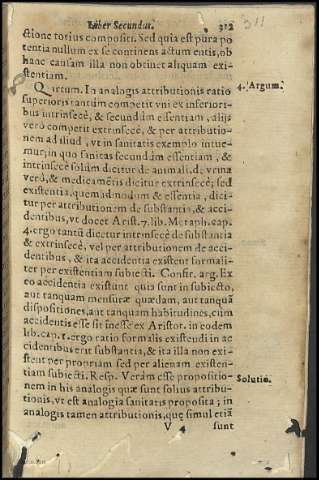 Liber Secundus. 312
311
ctione totius compositi. Sed quia est pura po
tentia nullum ex se continens actum entis, ob
hanc causam illa non obtinet aliquam exi-
stentiam.
4. Argum.
Quartum. In analogis attributionis ratio
superioris tantùm competit vni ex inferiori-
bus intrinsecè, & secundùm essentiam, alijs
verò competit extrinsecè, & per attributio-
nem ad illud, vt in sanitatis exemplo intue-
mur, in quo sanitas secundùm essentiam, &
intrinsecè solùm dicitur de animali, de vrina
verò, & medicamētis dicitur extrinsecè; sed
existentia, quemadmodum & essentia, dici-
tur per attributionem de substantia, & acci-
dentibus, vt docet Arist. 7. lib. Metaph. cap.
4. ergo tantū dicetur intrinsecè de substantia
& extrinsecè, vel per attributionem de acci-
dentibus, & ita accidentia existent formali-
ter per existentiam subiecti. Confir. arg. Ex
eo accidentia existunt quia sunt in subiecto,
aut tanquam mensuræ quædam, aut tanquā
dispositiones, aut tanquam habitudines, cùm
accidentis esse sit inesse ex Aristot. in eodem
lib. cap. 1. ergo ratio formalis existendi in ac
cidentibus erit substantia, & ita illa non exi-
stent per propriam sed per alienam existen-
tiam subiecti. Resp. Veram esse propositio-
Solutio.
nem in his analogis quæ sunt solius attribu-
tionis, vt est analogia sanitatis proposita; in
analogis tamen attributionis, quę simul etiā
V 4 sunt